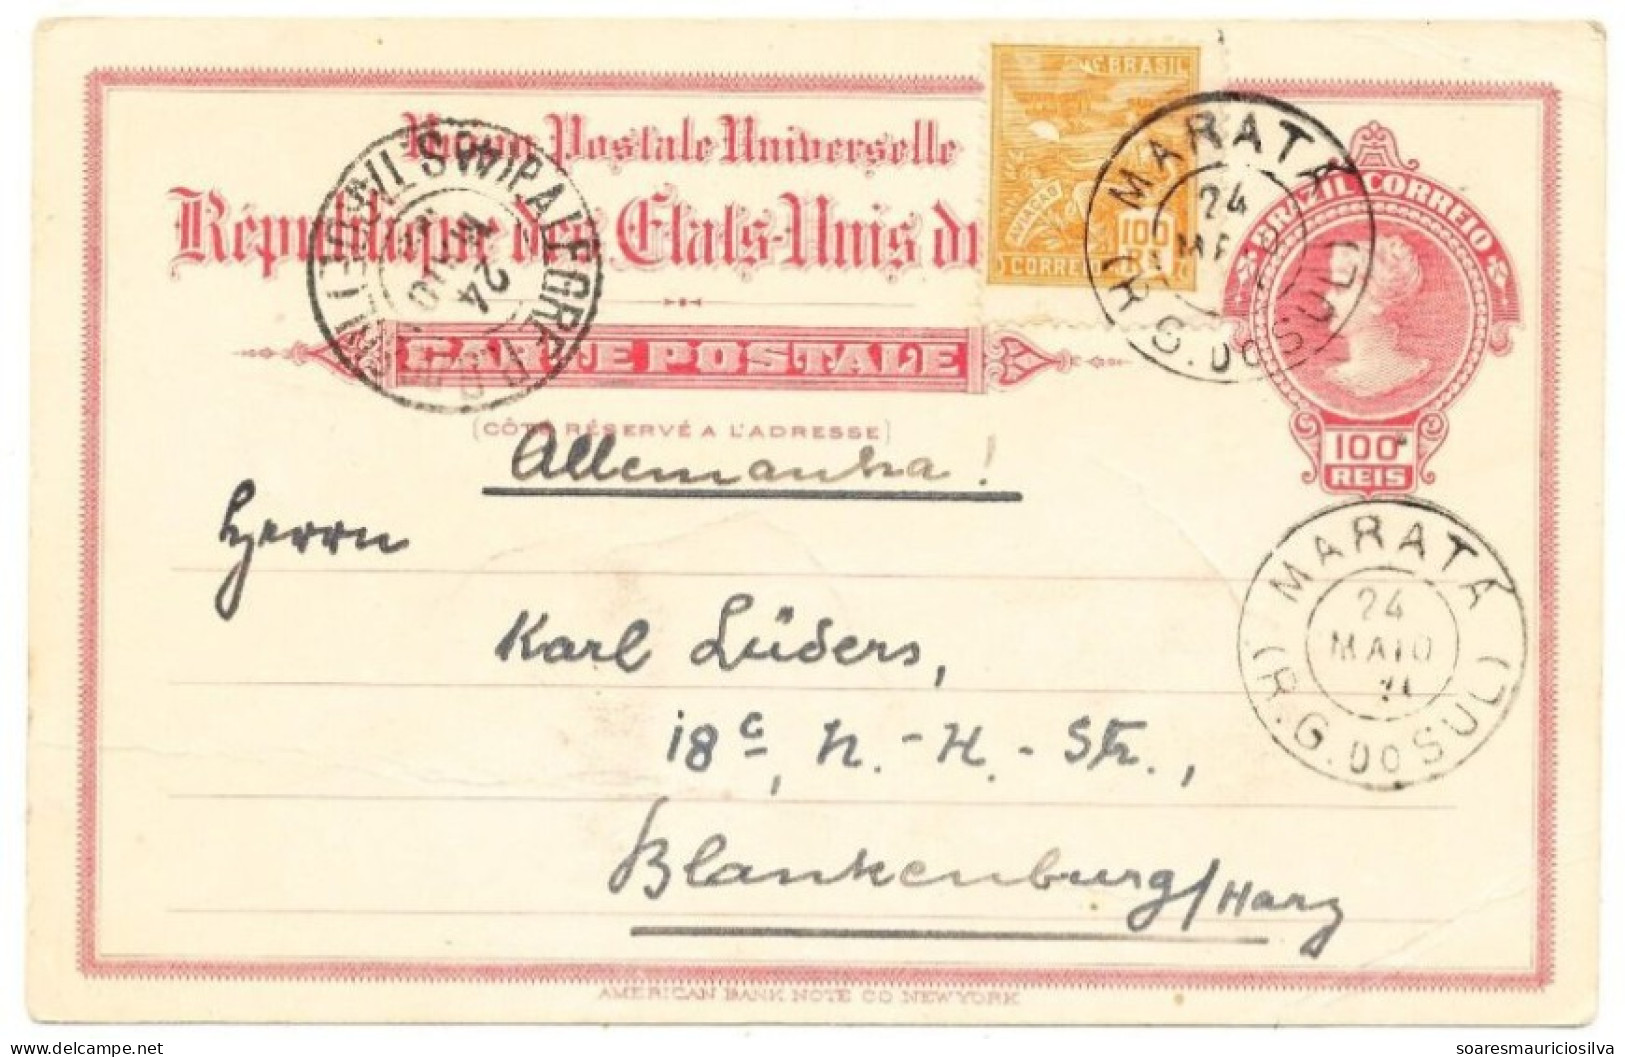 Postale Universelle
République des États-Unis du
CARTE POSTALE
(CÔTÉ RÉSERVÉ A L'ADRESSE)
BRASIL
AVIAÇÃO
100
CORREIO
BRAZIL CORREIO
100
REIS
MARATÁ
24
(R.G. DO SUL)
P. ALEGRE
24
MAIO
MARATÁ
24
MAIO
(R.G. DO SUL)
Allemanha!
Herrn
Karl Lüders,
18c, H.-H.-Str.,
Blankenburg/Harz
AMERICAN BANK NOTE CO NEW YORK
delcampe.net
soaresmauriciosilva